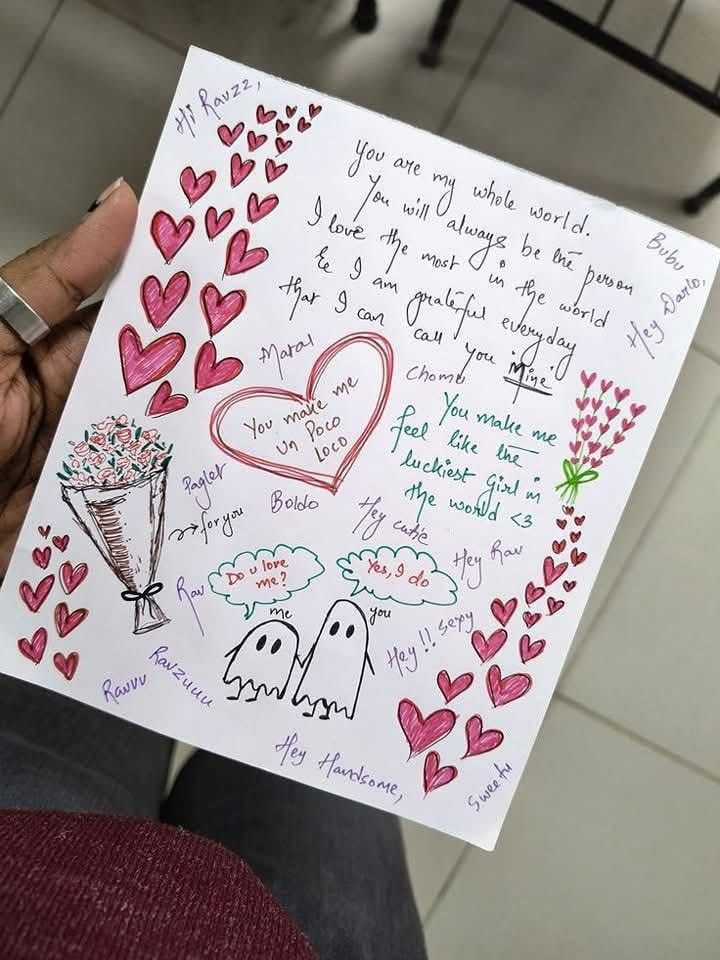 Hi Ravzz,
You are my whole world.
You will always be the person
I love the most in the world
& I am grateful everyday
that I can call you "Mine"
Bubu
Hey Darlo,
Chomu
You make me
un Poco
Loco
You make me
feel like the
luckiest girl in
the world <3
Paglet
Boldo
→ for you
Hey cutie
Hey Rav
Rav
Do u love
me?
Yes, I do
me
you
Hey!! sexy
Ravvv
Ravzuuu
Hey Handsome,
Sweetu